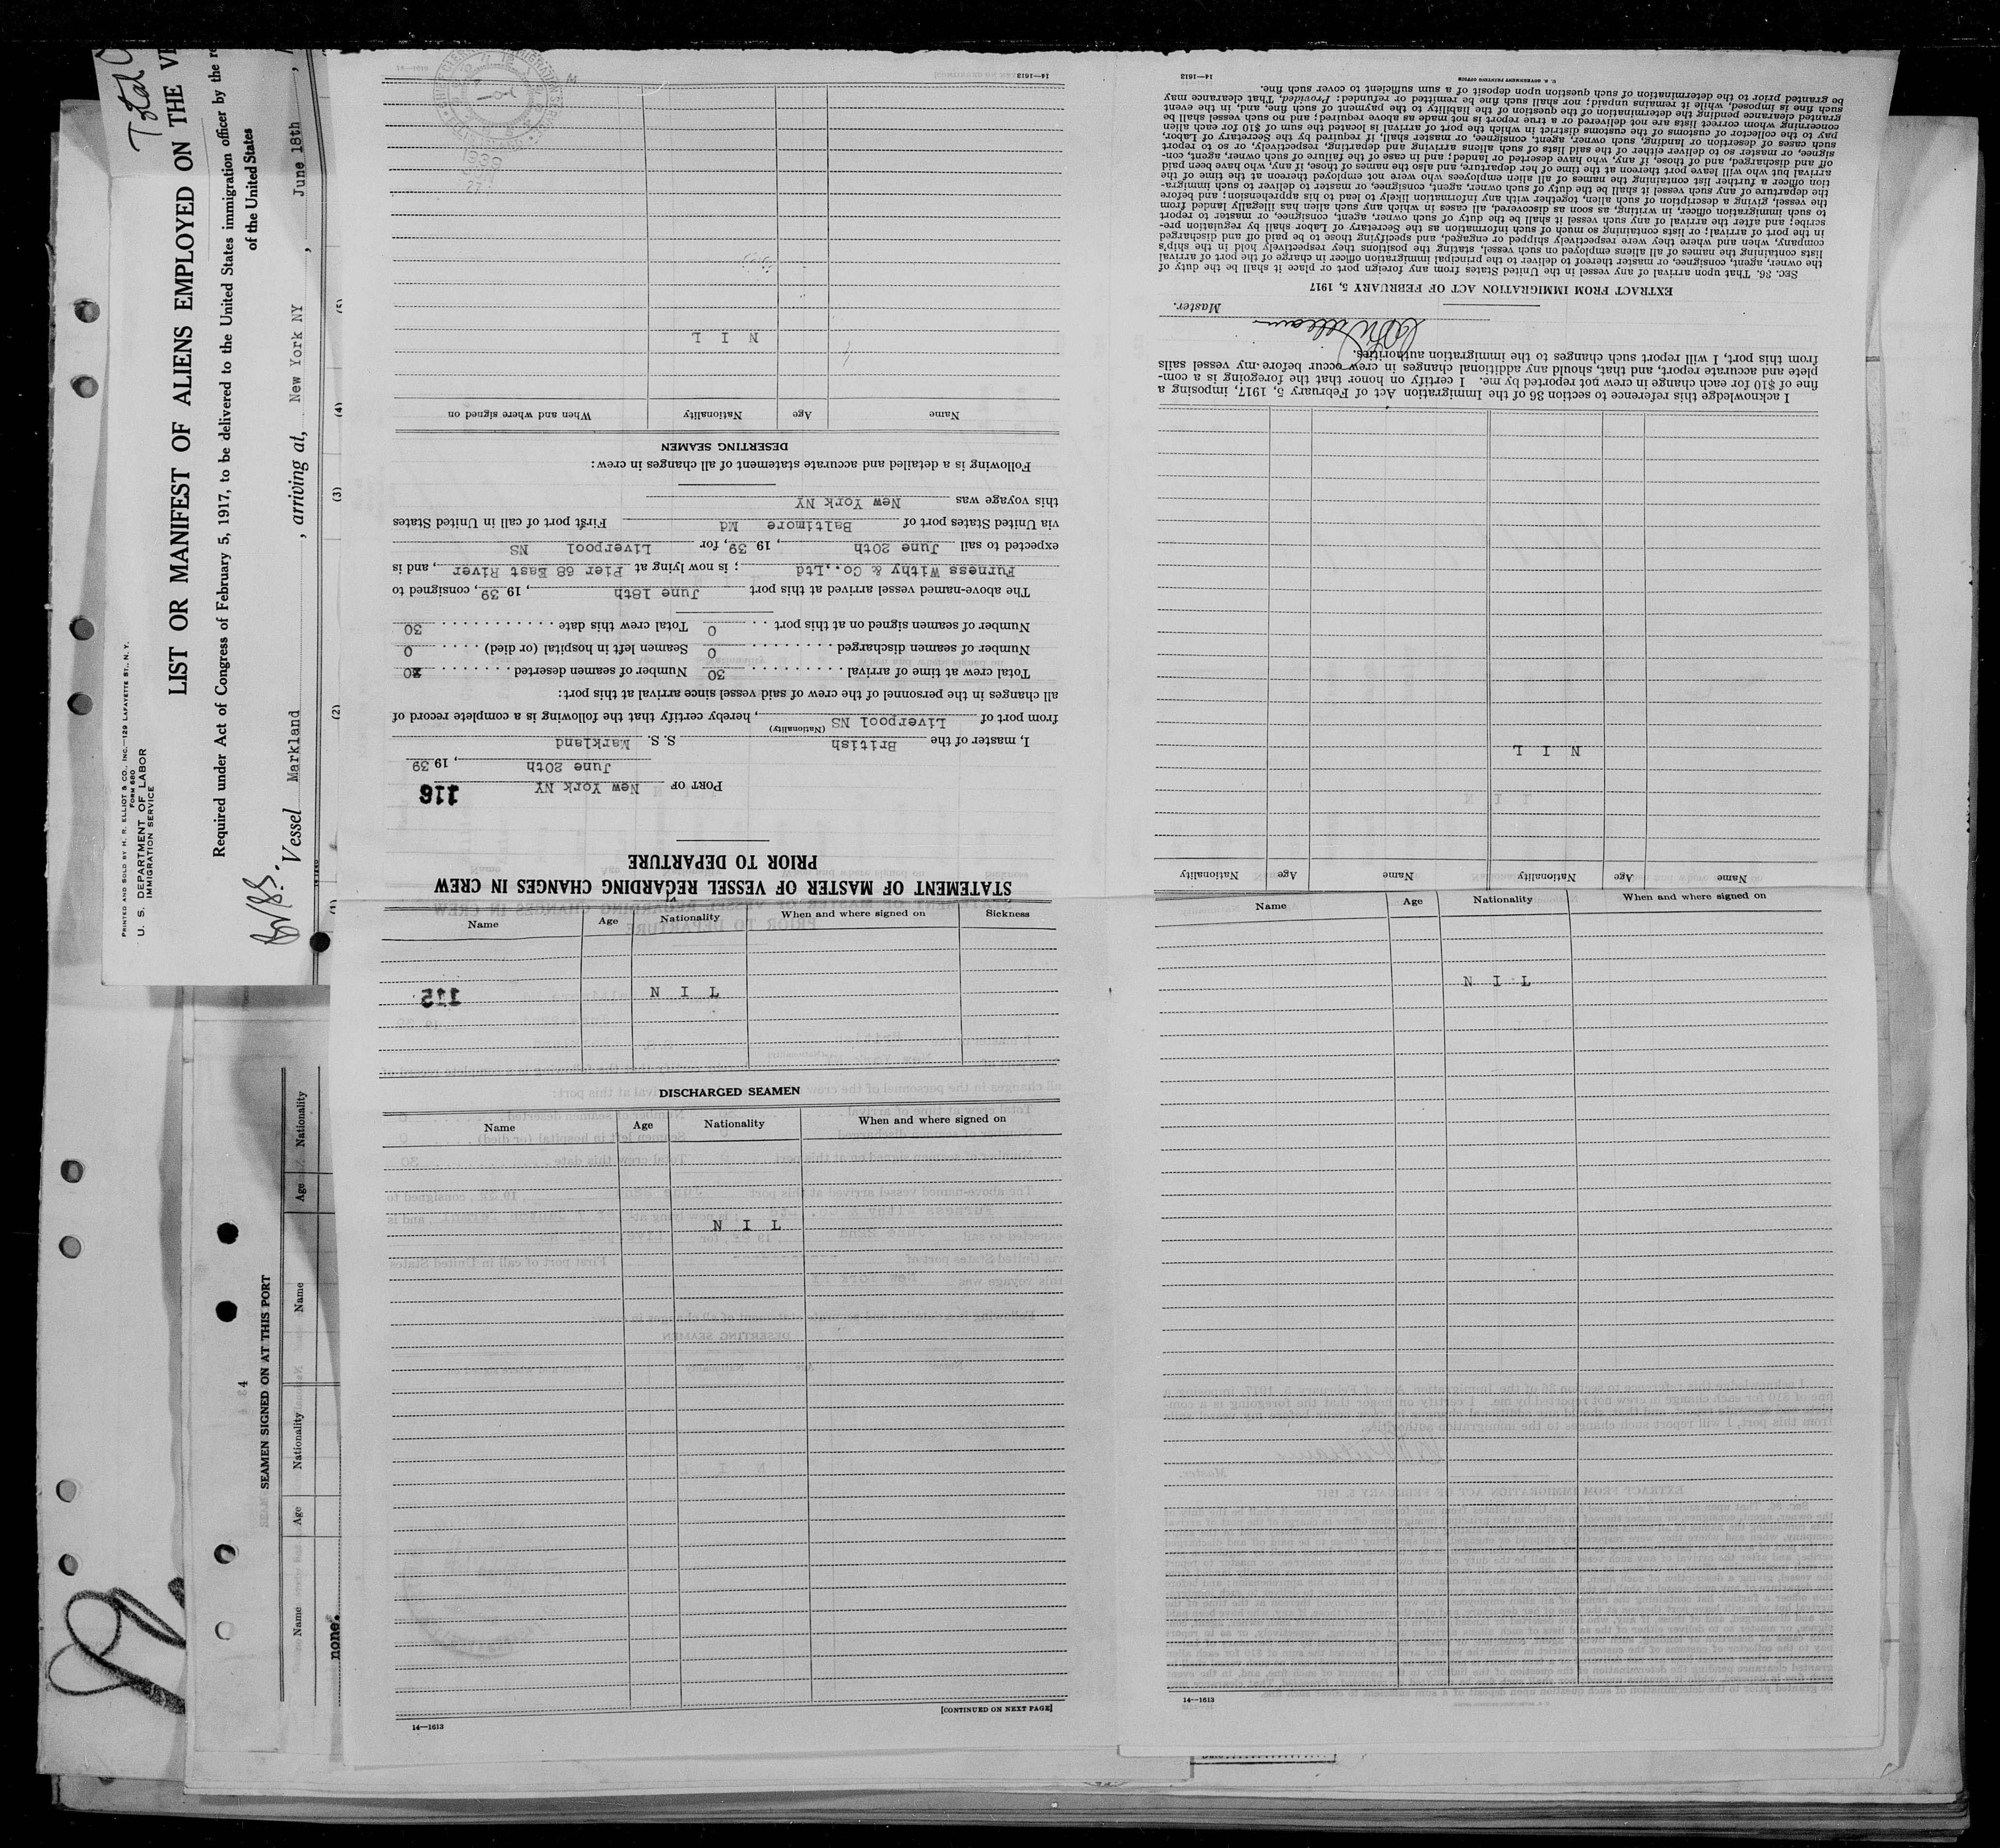 PRINTED AND SOLD BY H. R. ELLIOT & CO., INC.—129 LAFAYETTE ST., N. Y.
FORM 680
U. S. DEPARTMENT OF LABOR
IMMIGRATION SERVICE
LIST OR MANIFEST OF ALIENS EMPLOYED ON THE
Required under Act of Congress of February 5, 1917, to be delivered to the United States immigration officer by the
of the United States
Vessel Markland , arriving at, New York NY , June 18th ,
(1) (2) (3) (4) (5)
Total
SEAMEN SIGNED ON AT THIS PORT
Name Age Nationality Name Age Nationality
none.
STATEMENT OF MASTER OF VESSEL REGARDING CHANGES IN CREW
PRIOR TO DEPARTURE
116
PORT OF New York NY
June 20th , 19 39
I, master of the British S. S. Markland
(Nationality)
from port of Liverpool NS , hereby certify that the following is a complete record of
all changes in the personnel of the crew of said vessel since arrival at this port:
Total crew at time of arrival 30 Number of seamen deserted
Number of seamen discharged 0 Seamen left in hospital (or died) 0
Number of seamen signed on at this port 0 Total crew this date 30
The above-named vessel arrived at this port June 18th , 19 39 , consigned to
Furness Withy & Co..Ltd ; is now lying at Pier 68 East River , and is
expected to sail June 20th , 19 39, for Liverpool NS
via United States port of Baltimore Md First port of call in United States
this voyage was New York NY
Following is a detailed and accurate statement of all changes in crew:
DESERTING SEAMEN
Name Age Nationality When and where signed on
N I L
14—1613
Name Age Nationality When and where signed on Sickness
N I L
115
DISCHARGED SEAMEN
Name Age Nationality When and where signed on
N I L
[CONTINUED ON NEXT PAGE]
14—1613
Name Age Nationality Name Age Nationality
N I L
I acknowledge this reference to section 36 of the Immigration Act of February 5, 1917, imposing a
fine of $10 for each change in crew not reported by me. I certify on honor that the foregoing is a com-
plete and accurate report, and that, should any additional changes in crew occur before my vessel sails
from this port, I will report such changes to the immigration authorities.
Master.
EXTRACT FROM IMMIGRATION ACT OF FEBRUARY 5, 1917
SEC. 36. That upon arrival of any vessel in the United States from any foreign port or place it shall be the duty of
the owner, agent, consignee, or master thereof to deliver to the principal immigration officer in charge of the port of arrival
lists containing the names of all aliens employed on such vessel, stating the positions they respectively hold in the ship's
company, when and where they were respectively shipped or engaged, and specifying those to be paid off and discharged
in the port of arrival; or lists containing so much of such information as the Secretary of Labor shall by regulation pre-
scribe; and after the arrival of any such vessel it shall be the duty of such owner, agent, consignee, or master to report
to such immigration officer, in writing, as soon as discovered, all cases in which any such alien has illegally landed from
the vessel, giving a description of such alien, together with any information likely to lead to his apprehension; and before
the departure of any such vessel it shall be the duty of such owner, agent, consignee, or master to deliver to such immigra-
tion officer a further list containing the names of all alien employees who were not employed thereon at the time of the
arrival but who will leave port thereon at the time of her departure, and also the names of those, if any, who have been paid
off and discharged, and of those, if any, who have deserted or landed; and in case of the failure of such owner, agent, con-
signee, or master so to deliver either of the said lists of such aliens arriving and departing, respectively, or so to report
such cases of desertion or landing, such owner, agent, consignee, or master shall, if required by the Secretary of Labor,
pay to the collector of customs of the customs district in which the port of arrival is located the sum of $10 for each alien
concerning whom correct lists are not delivered or a true report is not made as above required; and no such vessel shall be
granted clearance pending the determination of the question of the liability to the payment of such fine, and, in the event
such fine is imposed, while it remains unpaid; nor shall such fine be remitted or refunded: Provided, That clearance may
be granted prior to the determination of such question upon deposit of a sum sufficient to cover such fine.
U. S. GOVERNMENT PRINTING OFFICE
14—1613
Name Age Nationality When and where signed on
N I L
14—1613